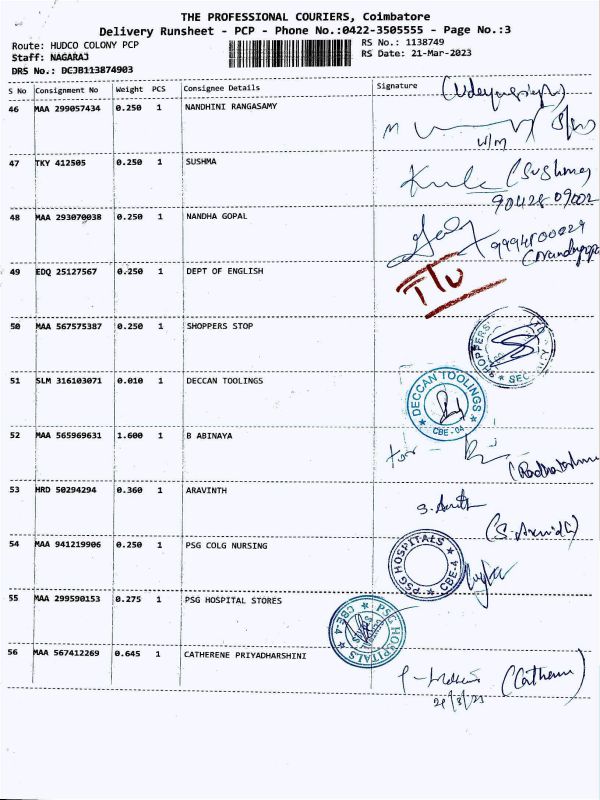 THE PROFESSIONAL COURIERS, Coimbatore
Delivery Runsheet - PCP - Phone No.:0422-3505555 - Page No.:3
Route: HUDCO COLONY PCP
RS No.: 1138749
Staff: NAGARAJ
RS Date: 21-Mar-2023
DRS No.: DCJB113874903
S No Consignment No Weight PCS Consignee Details Signature
46 MAA 299057434 0.250 1 NANDHINI RANGASAMY
W/M
47 TKY 412505 0.250 1 SUSHMA
(Sushma)
90428 09002
48 MAA 293070038 0.250 1 NANDHA GOPAL
49 EDQ 25127567 0.250 1 DEPT OF ENGLISH
50 MAA 567575387 0.250 1 SHOPPERS STOP
SHOPPERS
51 SLM 316103071 0.010 1 DECCAN TOOLINGS
DECCAN TOOLINGS
CBE-04
52 MAA 565969631 1.600 1 B ABINAYA
53 HRD 50294294 0.360 1 ARAVINTH
54 MAA 941219906 0.250 1 PSG COLG NURSING
PSG HOSPITALS
CBE-4
55 MAA 299590153 0.275 1 PSG HOSPITAL STORES
PSG HOSPITALS
CBE-4
56 MAA 567412269 0.645 1 CATHERENE PRIYADHARSHINI